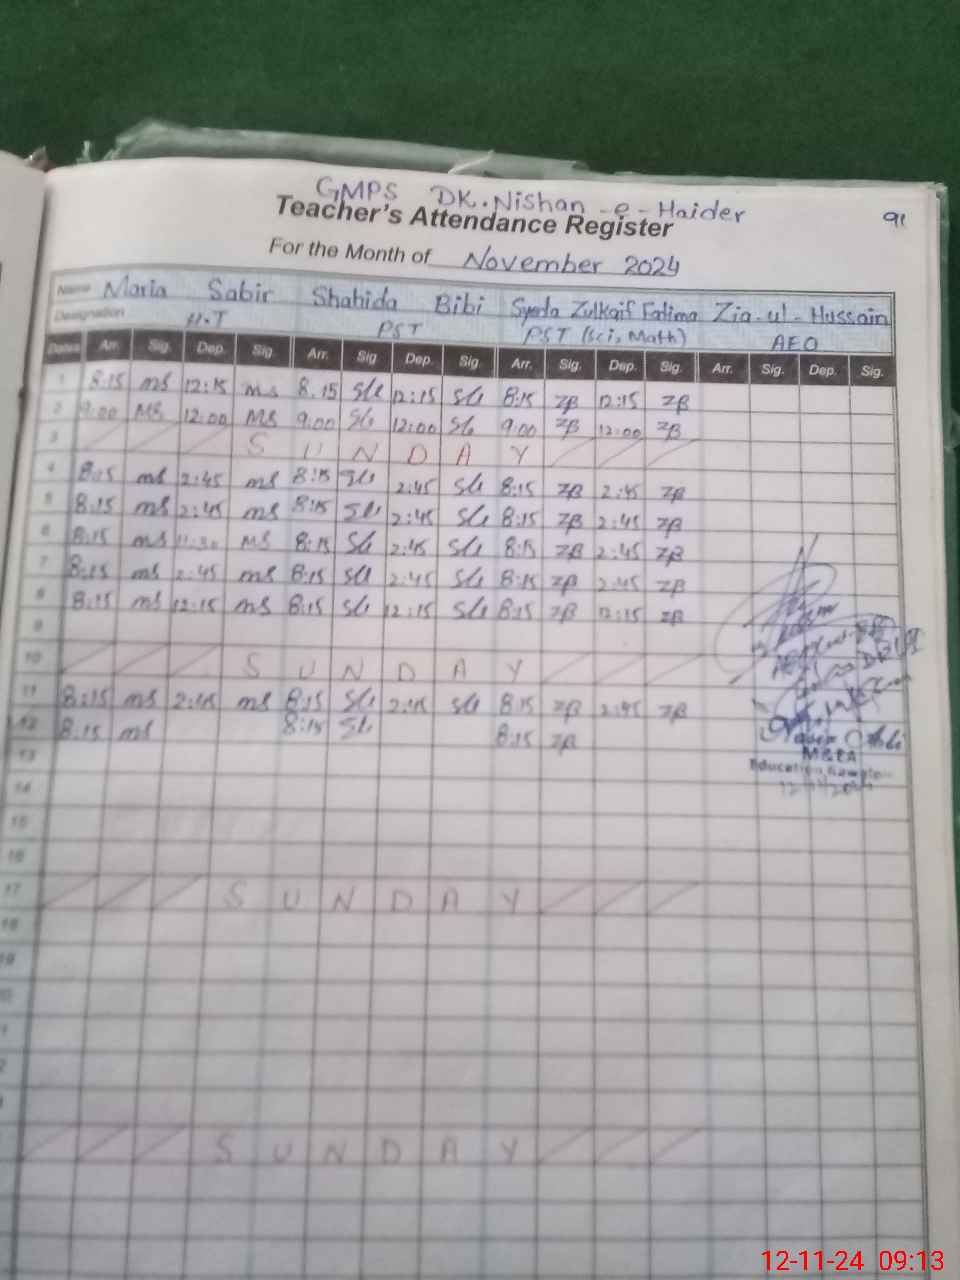 GMPS DK. Nishan-e-Haider
91
Teacher's Attendance Register
For the Month of November 2024
Name Maria Sabir Shahida Bibi Syeda Zulkaif Fatima Zia-ul-Hussain
Designation H.T PST PST (Sci, Math) AEO
Dates Arr. Sig. Dep. Sig. Arr. Sig Dep. Sig. Arr. Sig. Dep. Sig. Arr. Sig. Dep. Sig.
1 8:15 ms 12:15 ms 8:15 12:15 8:15 ZB 12:15 ZB
2 9:00 MS 12:00 MS 9:00 12:00 9:00 ZB 12:00 ZB
3 S U N D A Y
4 8:15 ms 2:45 ms 8:15 2:45 8:15 ZB 2:45 ZB
5 8:15 ms 2:45 ms 8:15 2:45 8:15 ZB 2:45 ZB
6 8:15 ms 11:30 MS 8:15 2:45 8:15 ZB 2:45 ZB
7 8:15 ms 2:45 ms 8:15 2:45 8:15 ZB 2:45 ZB
8 8:15 ms 12:15 ms 8:15 12:15 8:15 ZB 12:15 ZB
9
10 S U N D A Y
11 8:15 ms 2:45 ms 8:15 2:45 8:15 ZB 2:45 ZB
12 8:15 ms 8:15 8:15 ZB
M&EA
Education
13
14
15
16
17 S U N D A Y
18
19
S U N D A Y
12-11-24 09:13